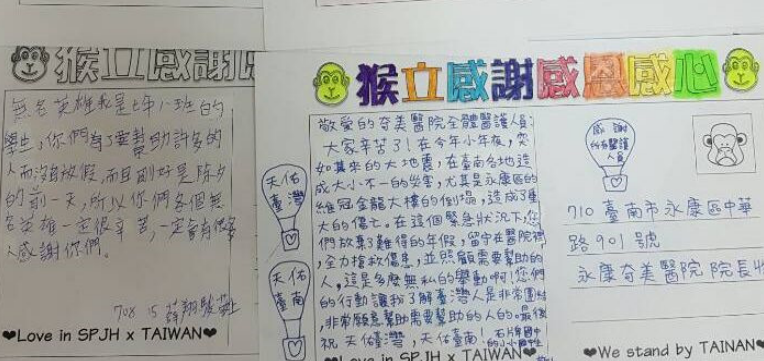 猴立感謝
無名英雄我是七年八班的
學生，你們為了要幫助許多的
人而沒有放假，而且剛好是除夕
的前一天，所以你們各個無
名英雄一定很辛苦，一定會有很多
人感謝你們。
708 15
♥Love in SPJH x TAIWAN♥
猴立感謝感恩感心
敬愛的奇美醫院全體醫護人員：
大家辛苦了！在今年小年夜，突
如其來的大地震，在臺南各地造
成大小不一的災害，尤其是永康區的
維冠金龍大樓的倒塌，造成了重
大的傷亡。在這個緊急狀況下，您
們放棄了難得的年假，留守在醫院裡
，全力搶救傷患，並照顧需要幫助的
人，這是多麼無私的舉動啊！您們
的行動讓我了解臺灣人是非常團結
，非常願意幫助需要幫助的人的。最後
祝 天佑臺灣，天佑臺南！
天佑
臺灣
天佑
臺南
Love in SPJH x TAIWAN♥
感謝
所有醫護
人員
710 臺南市永康區中華
路901號
永康奇美醫院 院長收
♥We stand by TAINAN♥